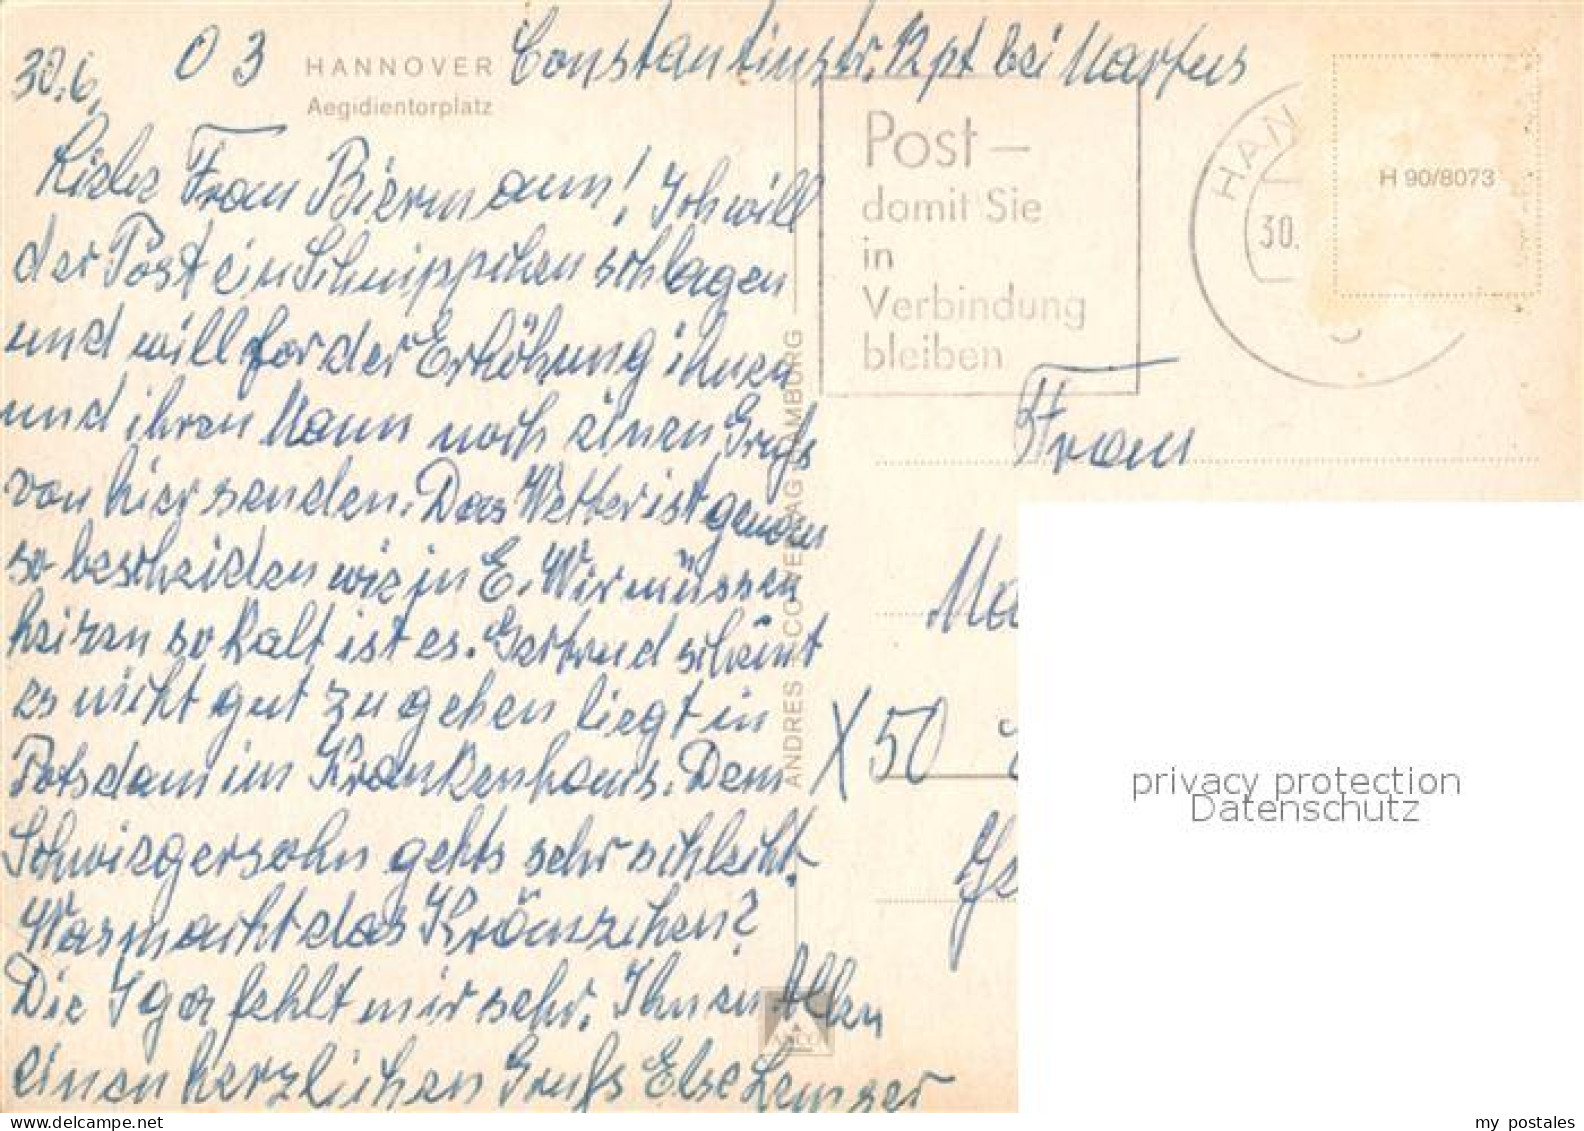 30.6.
03
HANNOVER
Aegidientorplatz
Constantinstr. 12 pt bei Martens
Liebe Frau Biermann! Ich will
der Post ein Schnippchen schlagen
und will for der Erhöhung ihnen
und ihren Mann noch einen Gruß
von hier senden. Das Wetter ist genau
so bescheiden wie in E. Wir müssen
heizen so kalt ist es. Gertrud scheint
es nicht gut zu gehen liegt in
Potsdam im Krankenhaus. Dem
Schwiegersohn gehts sehr schlecht.
Was macht das Kränzchen?
Die Iga fehlt mir sehr. Ihnen Allen
einen herzlichen Gruß Else
ANDRES + CO VERLAG HAMBURG
ANCO
Post –
damit Sie
in
Verbindung
bleiben
HAN
30.
H 90/8073
Frau
Ma
X 50
Ge
privacy protection
Datenschutz
my postales